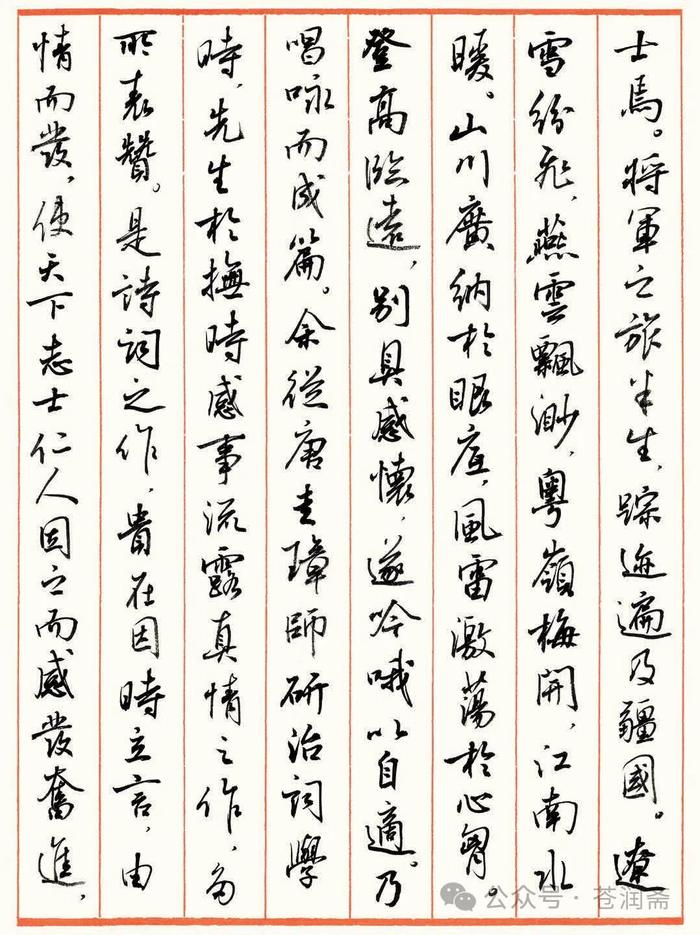 士焉。将軍之旅半生，踪迹遍及疆國。遼
雪紛飛，燕雲飄渺，粤嶺梅開，江南水
暖。山川廣納於眼底，風雷激蕩於心胸。
登高臨遠，别具感懷，遂吟哦以自適。乃
唱咏而成篇。余從唐圭璋師研治詞學
時，先生於撫時感事流露真情之作，多
所表贊。是詩詞之作，貴在因時立言，由
情而發，使天下志士仁人因之而感發奮進，
公众号·苍润斋